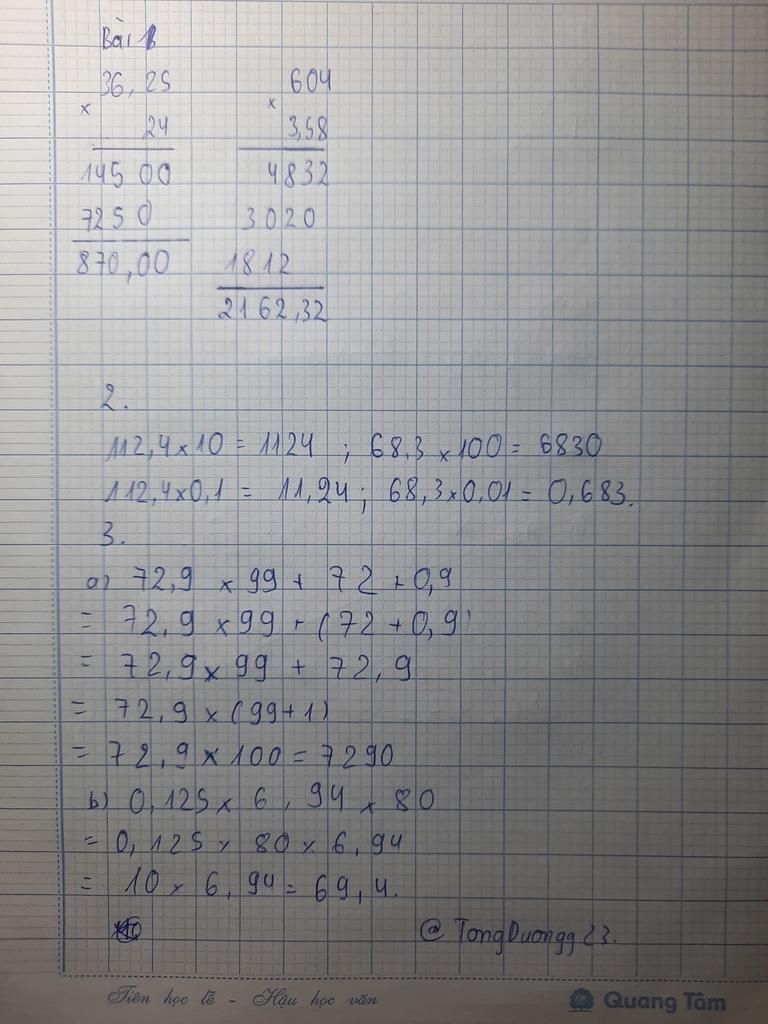 Bài 1
36,25
×
24
14500
7250
870,00
604
×
3,58
4832
3020
1812
2162,32
2.
112,4 × 10 = 1124 ; 68,3 × 100 = 6830
112,4 × 0,1 = 11,24 ; 68,3 × 0,01 = 0,683.
3.
a) 72,9 × 99 + 72 + 0,9
= 72,9 × 99 + (72 + 0,9)
= 72,9 × 99 + 72,9
= 72,9 × (99 + 1)
= 72,9 × 100 = 7290
b) 0,125 × 6,94 × 80
= 0,125 × 80 × 6,94
= 10 × 6,94 = 69,4.
@ TongDuongg23.
Tiên học lễ - Hậu học văn
Quang Tâm